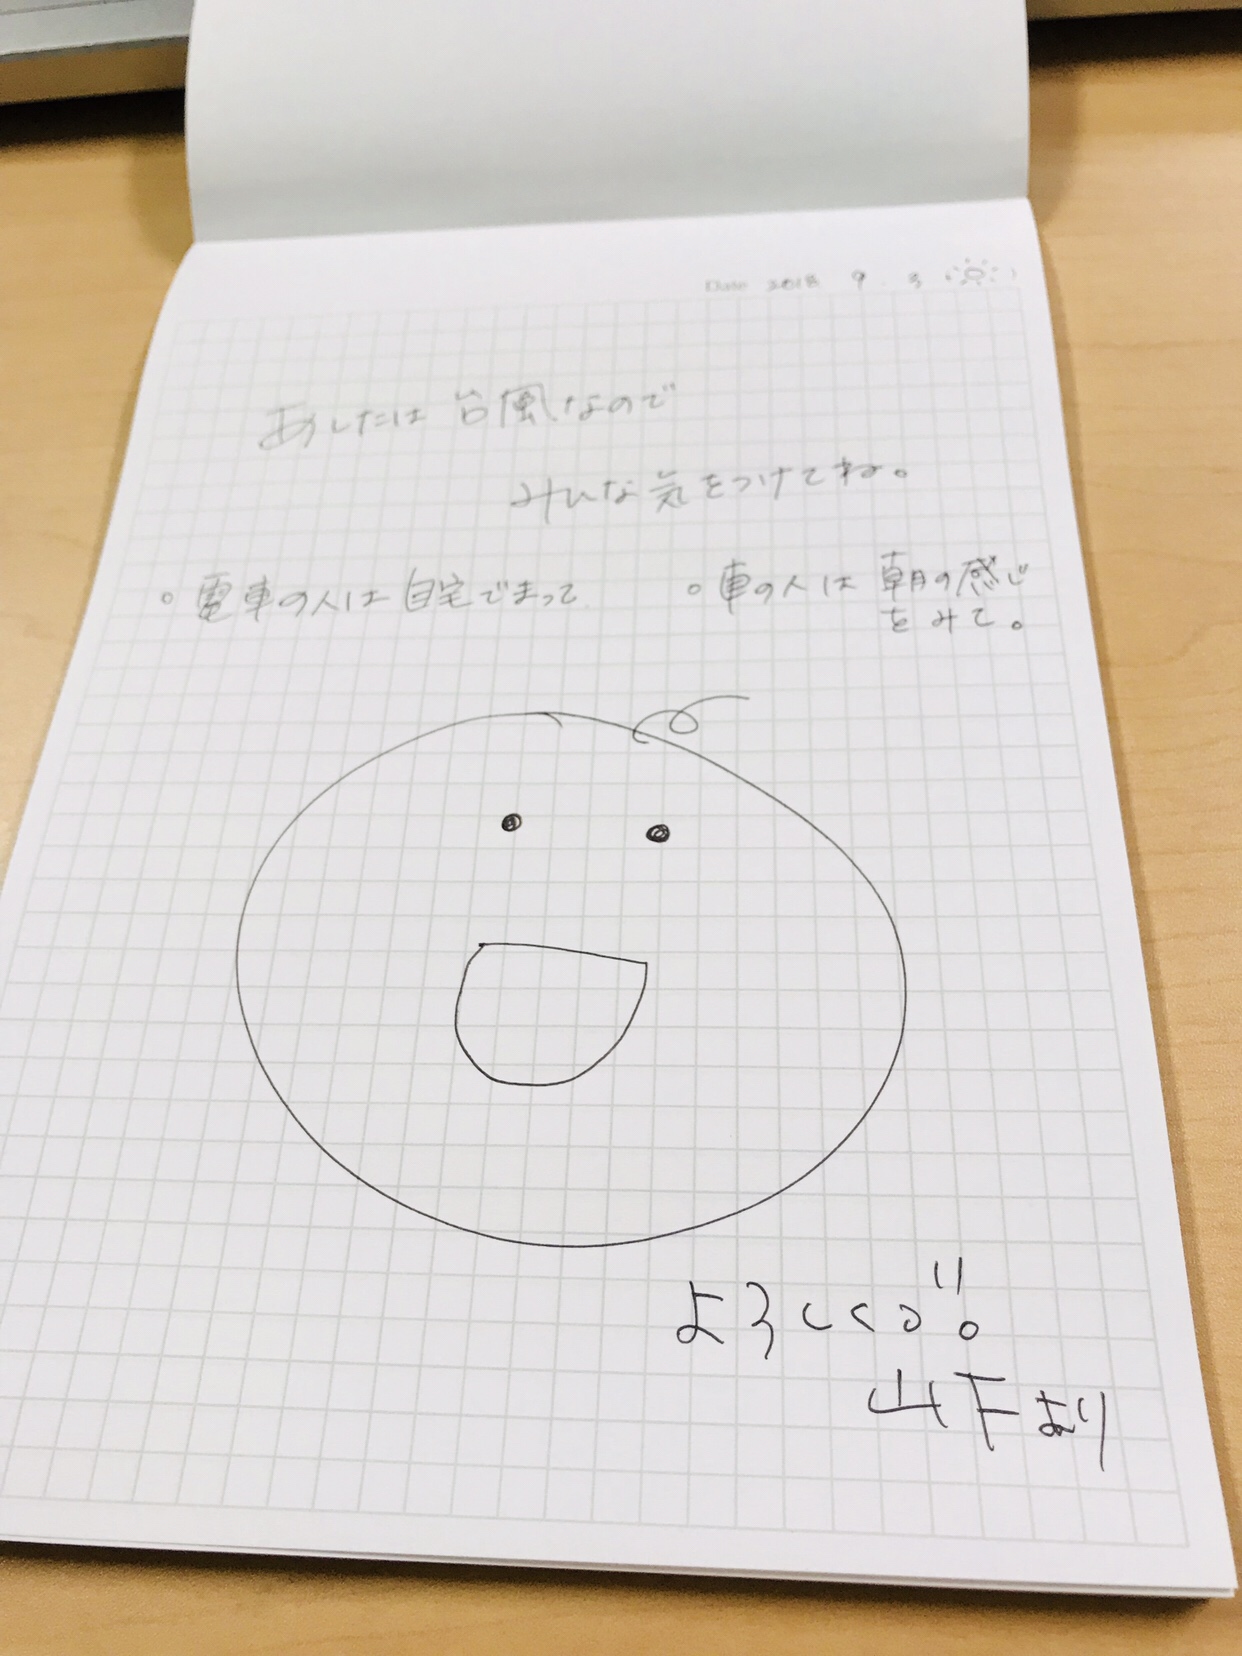 Date 2018 9. 3
あしたは台風なので
みんな気をつけてね。
○ 電車の人は自宅でまって
○ 車の人は朝の感じ
をみて。
よろしくっ!!。
山下より